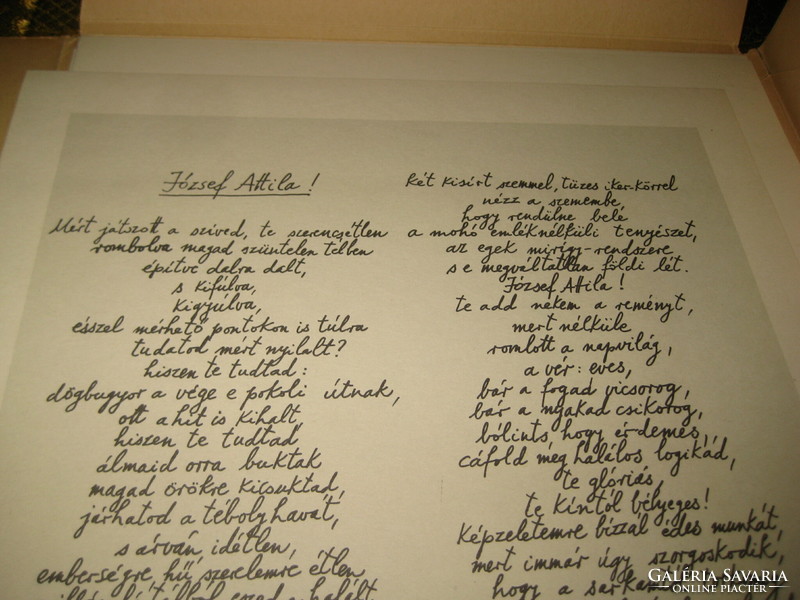 József Attila!
Mért játszott a szíved, te szerencsétlen
rombolva magad szüntelen télben
építve dalra dalt,
s kifúlva,
kigyúlva,
ésszel mérhető pontokon is túlra
tudatod mért nyilalt?
hiszen te tudtad:
dögbugyor a vége e pokoli útnak,
ott a hit is kihalt,
hiszen te tudtad
álmaid orra buktak
magad örökre kicsuktad,
járhatod a téboly havát,
s árván, idétlen,
emberségre hű, szerelemre étlen
Két kisírt szemmel, tüzes iker-körrel
nézz a szemembe,
hogy rendülne belé
a mohó emléknélküli tenyészet,
az egek mirigy-rendszere
s e megváltatlan földi lét.
József Attila!
te add nekem a reményt,
mert nélküle
romlott a napvilág,
a vér: eves,
bár a fogad vicsorog,
bár a nyakad csikorog,
bólints, hogy érdemes,
cáfold meg halálos logikád,
te glóriás,
te kíntól bélyeges!
Képzeletemre bízzál édes munkát,
mert immár úgy szorgoskodik,
hogy a
GALÉRIA SAVARIA
ONLINE PIACTÉR